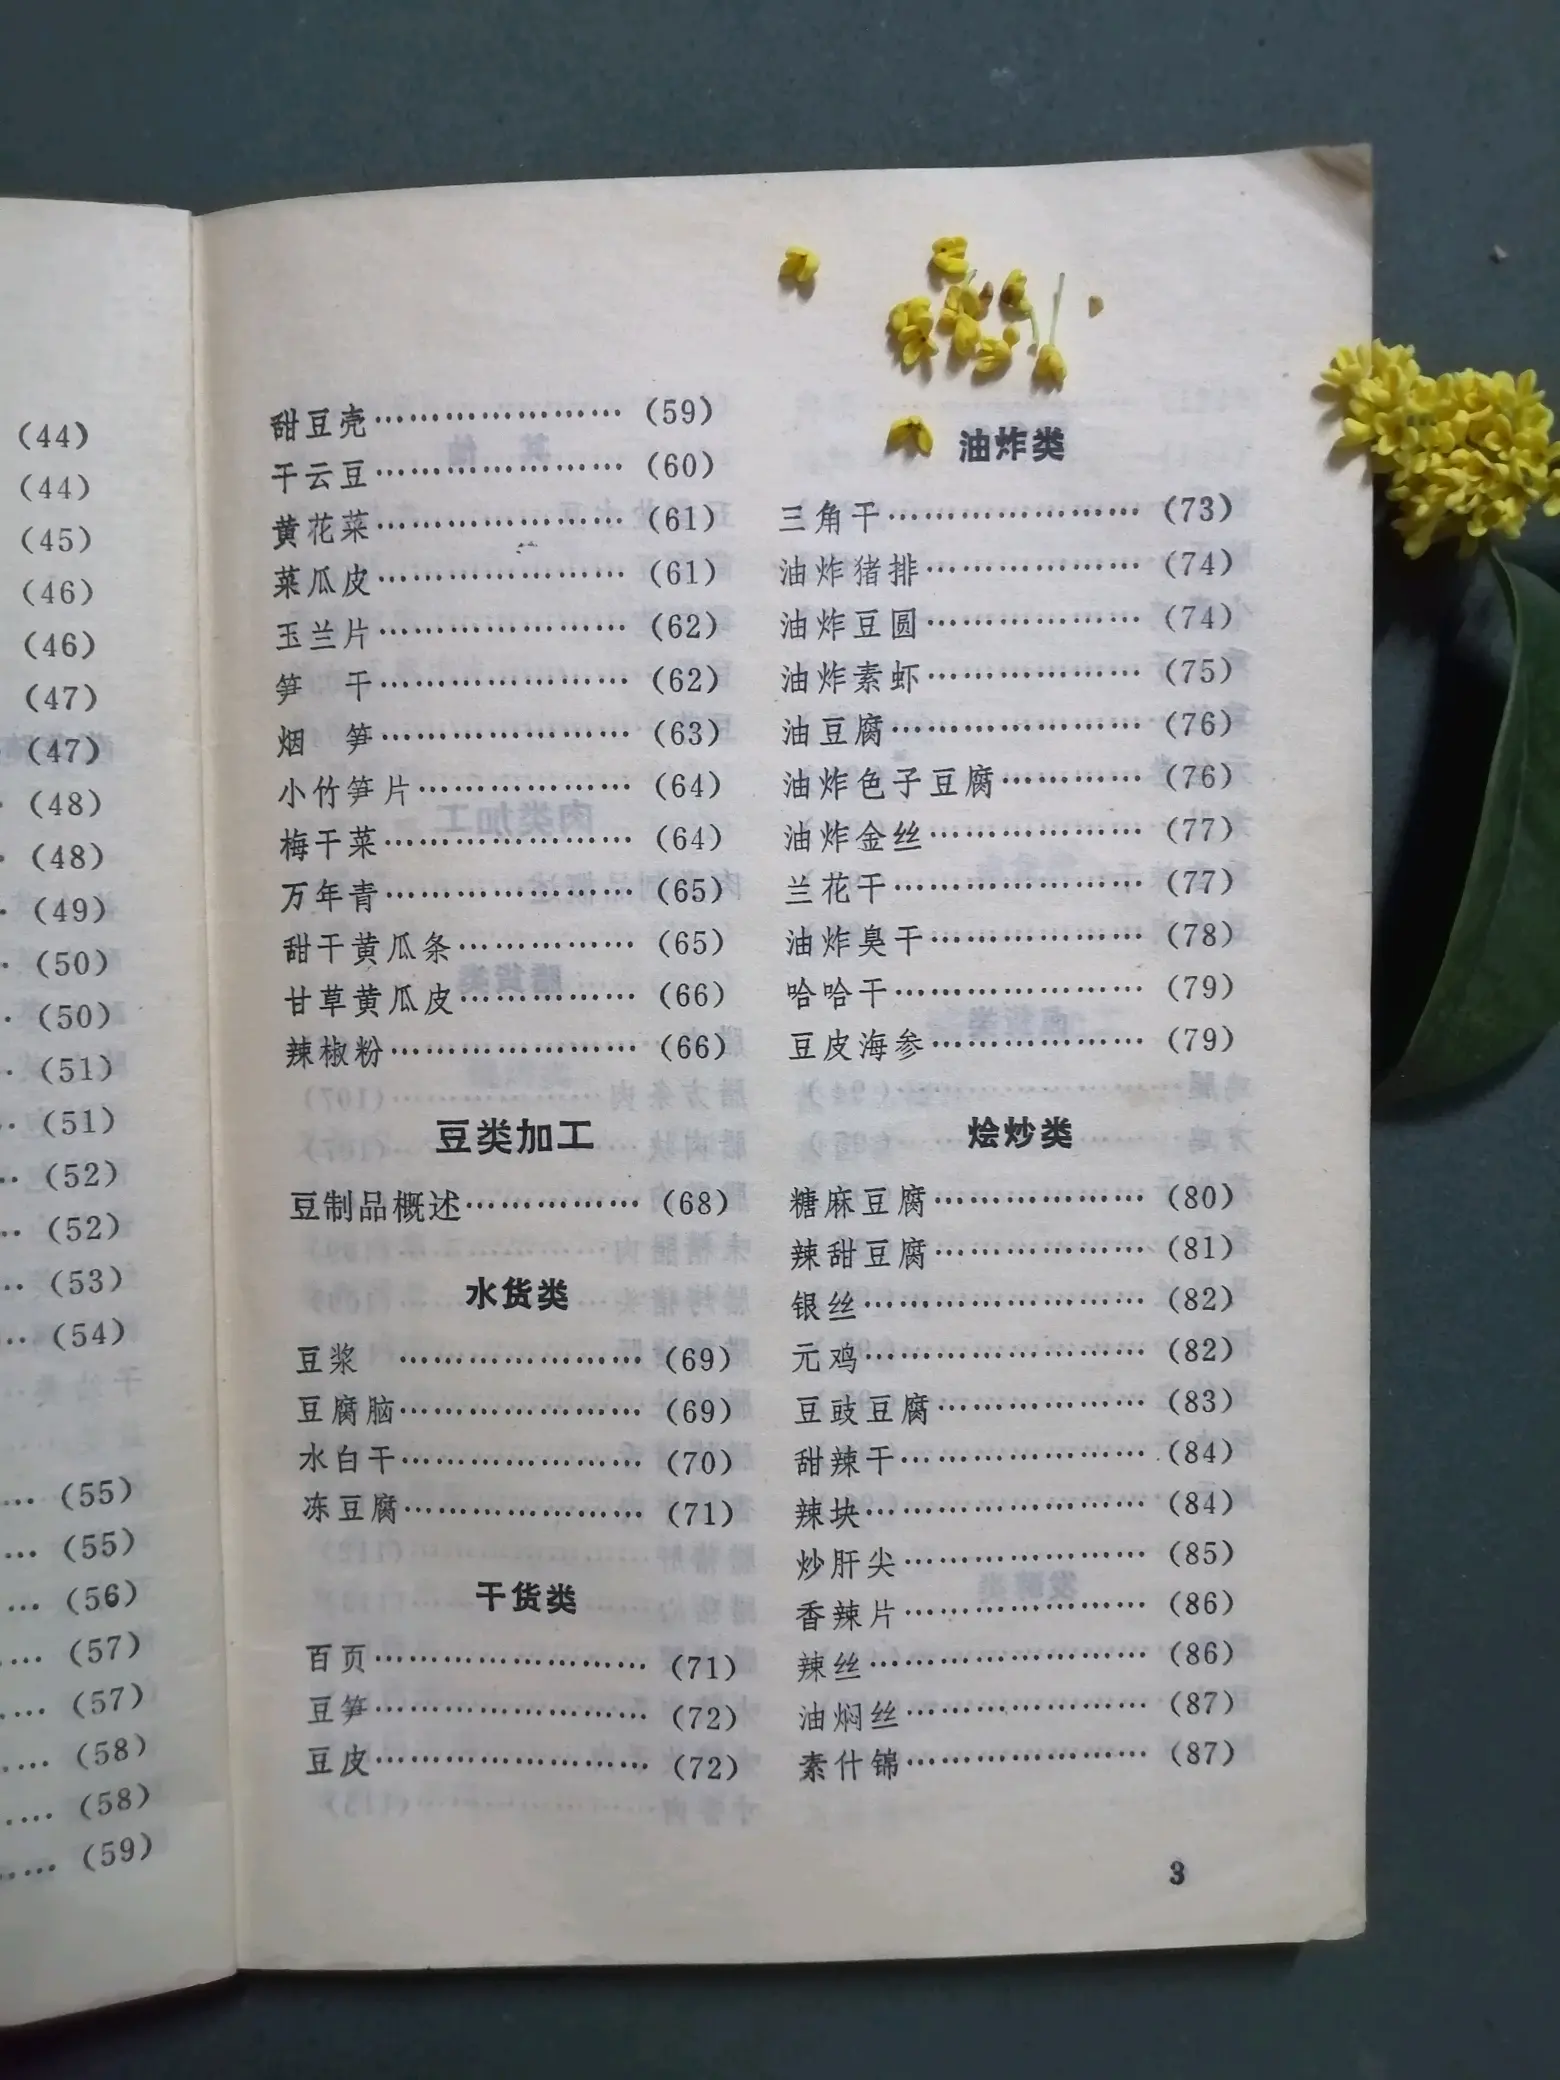 (44)
(44)
(45)
(46)
(46)
(47)
(47)
(48)
(48)
(49)
(50)
(50)
(51)
(51)
(52)
(52)
(53)
(54)
(55)
(55)
(56)
(57)
(57)
(58)
(58)
(59)
甜豆壳…………………(59)
干云豆…………………(60)
黄花菜…………………(61)
菜瓜皮…………………(61)
玉兰片…………………(62)
笋　干…………………(62)
烟　笋…………………(63)
小竹笋片………………(64)
梅干菜…………………(64)
万年青…………………(65)
甜干黄瓜条……………(65)
甘草黄瓜皮……………(66)
辣椒粉…………………(66)
豆类加工
豆制品概述……………(68)
水货类
豆浆　…………………(69)
豆腐脑…………………(69)
水白干…………………(70)
冻豆腐…………………(71)
干货类
百页……………………(71)
豆笋……………………(72)
豆皮……………………(72)
油炸类
三角干…………………(73)
油炸猪排………………(74)
油炸豆圆………………(74)
油炸素虾………………(75)
油豆腐…………………(76)
油炸色子豆腐…………(76)
油炸金丝………………(77)
兰花干…………………(77)
油炸臭干………………(78)
哈哈干…………………(79)
豆皮海参………………(79)
烩炒类
糖麻豆腐………………(80)
辣甜豆腐………………(81)
银丝……………………(82)
元鸡……………………(82)
豆豉豆腐………………(83)
甜辣干…………………(84)
辣块……………………(84)
炒肝尖…………………(85)
香辣片…………………(86)
辣丝……………………(86)
油焖丝…………………(87)
素什锦…………………(87)
3